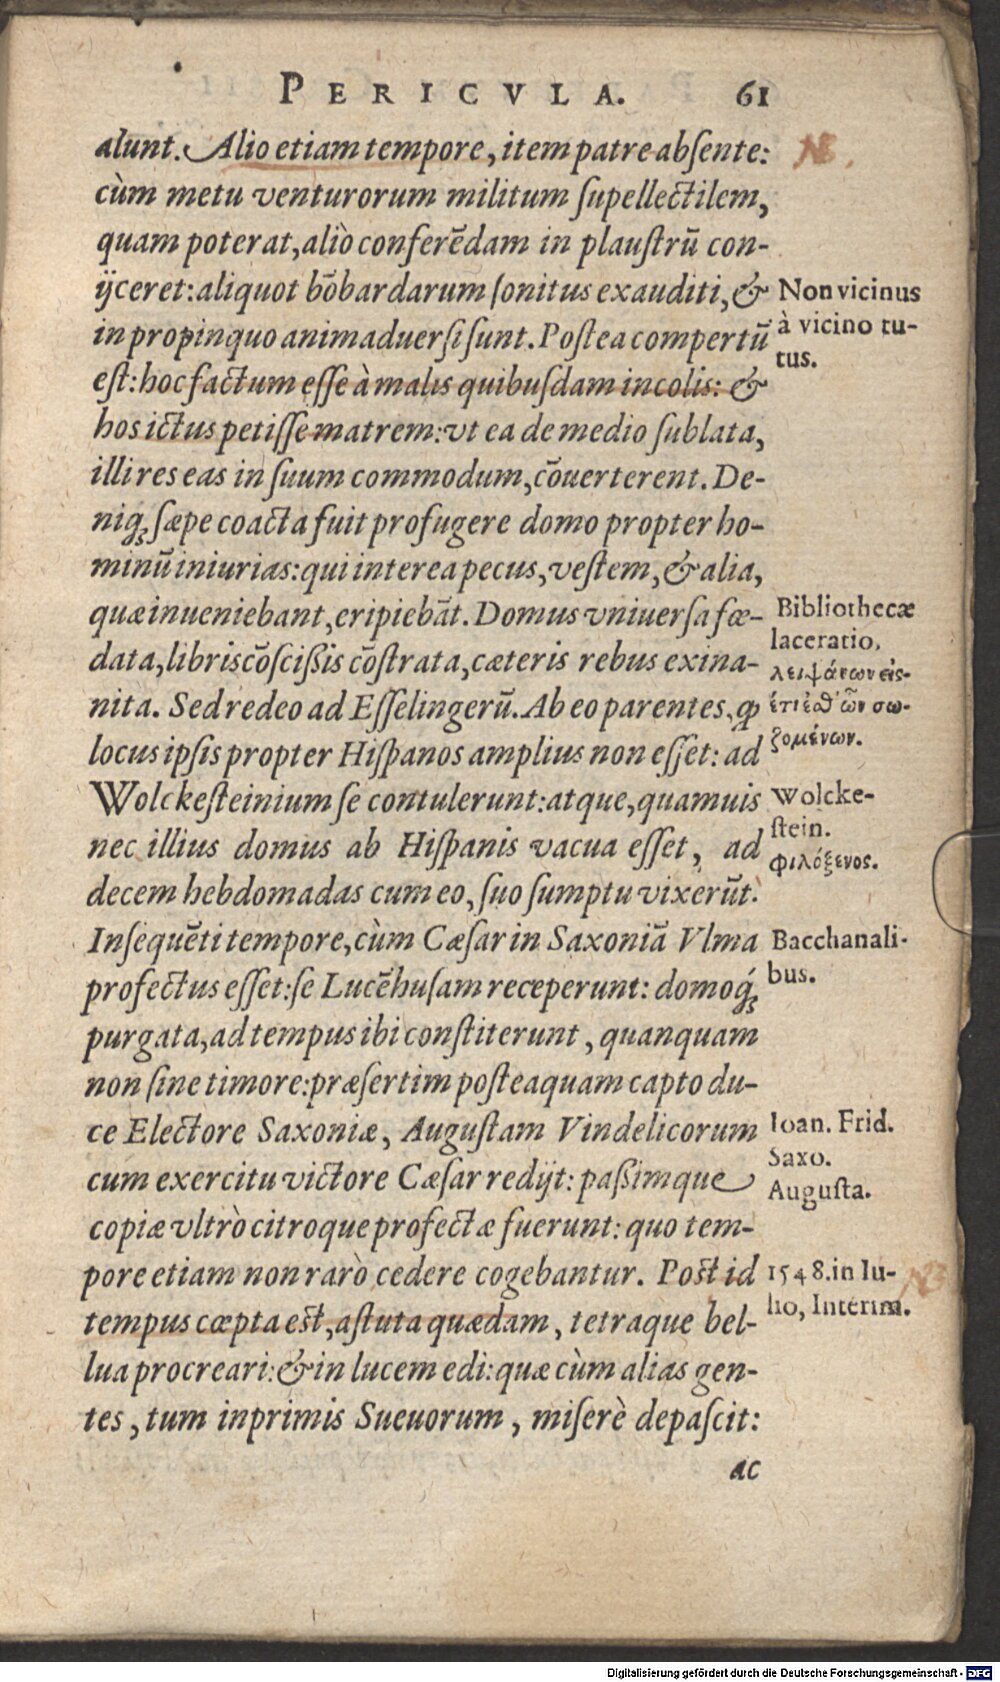 PERICVLA. 61
alunt. Alio etiam tempore, item patre absente:
NB.
cùm metu venturorum militum supellectilem,
quam poterat, aliò conferẽdam in plaustrũ con-
ijceret: aliquot bõbardarum sonitus exauditi, &
in propinquo animaduersi sunt. Postea compertũ
est: hoc factum esse à malis quibusdam incolis: &
Non vicinus
à vicino tu-
tus.
hos ictus petisse matrem: vt ea de medio sublata,
illi res eas in suum commodum, cõuerterent. De-
niq; sæpe coacta fuit profugere domo propter ho-
minũ iniurias: qui interea pecus, vestem, & alia,
quæ inueniebant, eripiebãt. Domus vniuersa fœ-
data, libris cõscißis cõstrata, cæteris rebus exina-
nita. Sed redeo ad Esselingerũ. Ab eo parentes, ꝙ
locus ipsis propter Hispanos amplius non esset: ad
Bibliothecæ
laceratio,
λειψάνων εἰς-
έτι ἐσθ' ὧν σω-
ζομένων.
Wolckesteinium se contulerunt: atque, quamuis
nec illius domus ab Hispanis vacua esset, ad
decem hebdomadas cum eo, suo sumptu vixerũt.
Wolcke-
stein.
φιλόξενος.
Insequẽti tempore, cùm Cæsar in Saxoniã Vlma
profectus esset: se Lucẽhusam receperunt: domoq́;
Bacchanali-
bus.
purgata, ad tempus ibi constiterunt, quanquam
non sine timore: præsertim posteaquam capto du-
ce Electore Saxoniæ, Augustam Vindelicorum
cum exercitu victore Cæsar redijt: paßimque
Ioan. Frid.
Saxo.
Augusta.
copiæ vltrò citroque profectæ fuerunt: quo tem-
pore etiam non rarò cedere cogebantur. Post id
tempus cœpta est, astuta quædam, tetraque bel-
1548. in Iu-
lio, Interim.
NB
lua procreari: & in lucem edi: quæ cùm alias gen-
tes, tum inprimis Sueuorum, miserè depascit:
ac
Digitalisierung gefördert durch die Deutsche Forschungsgemeinschaft - DFG